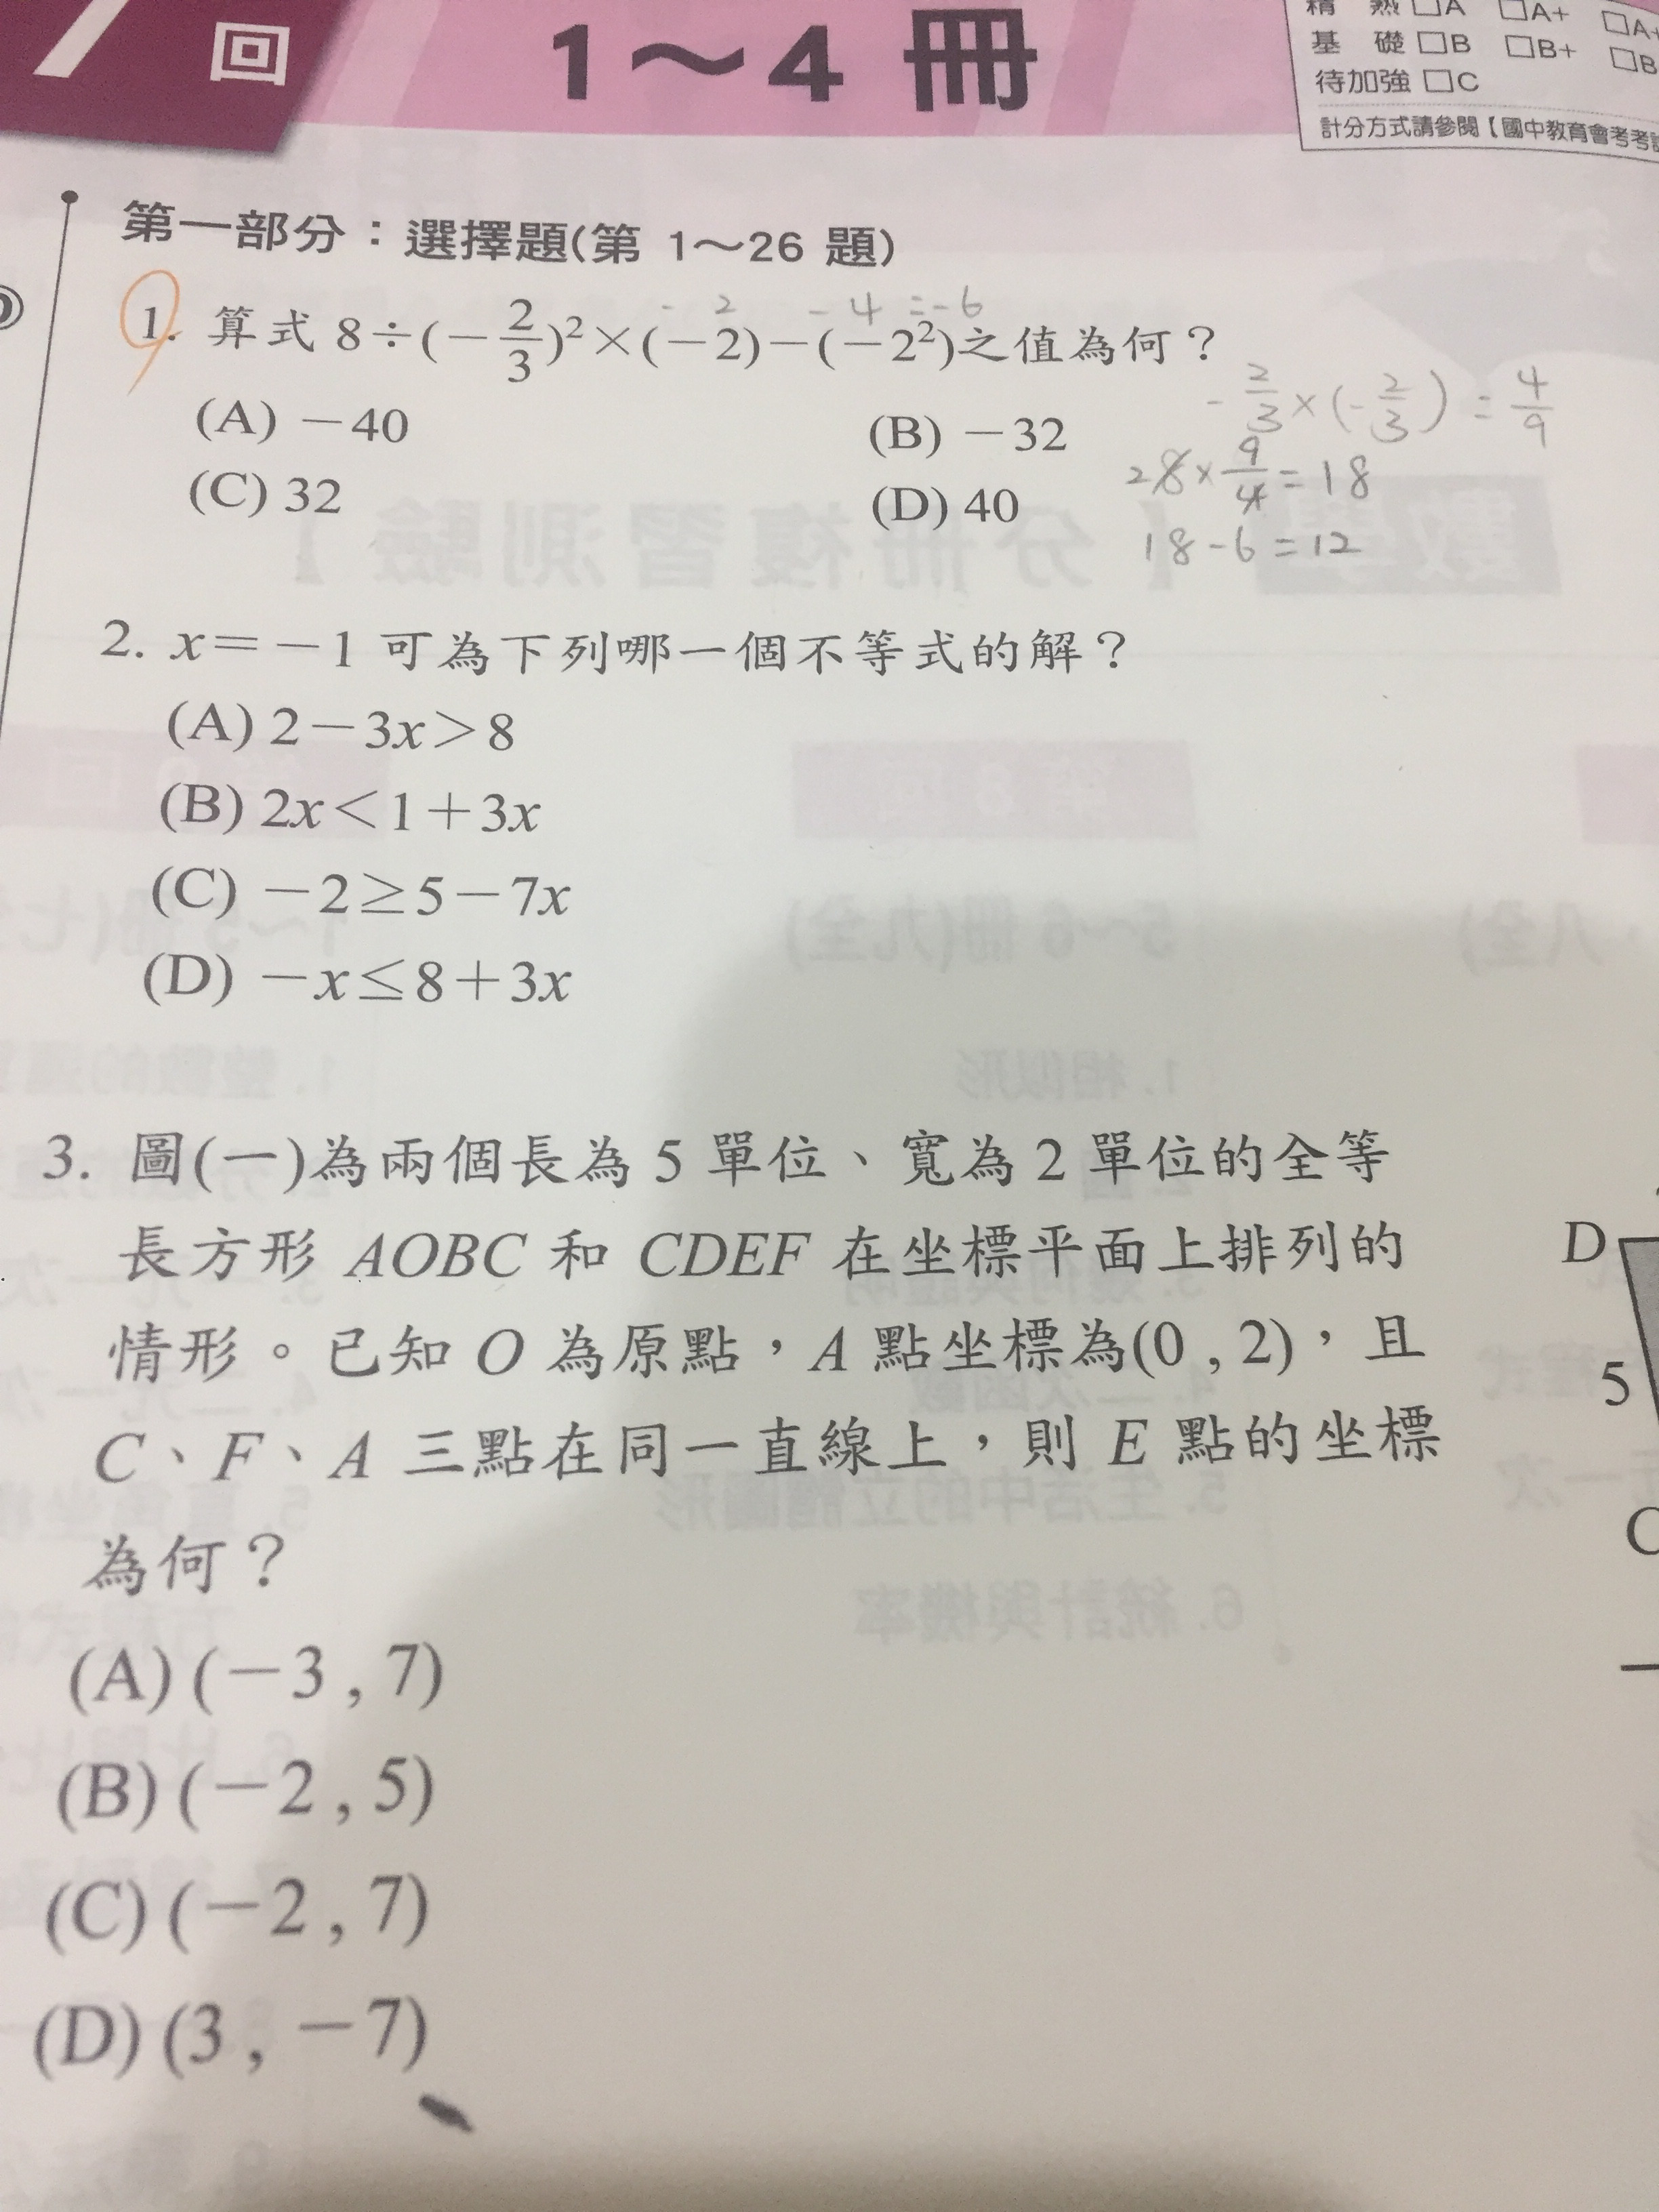 回
1～4 冊
精 熟 □A □A+
基 礎 □B □B+ □B
待加強 □C
計分方式請參閱【國中教育會考考
第一部分：選擇題(第 1～26 題)
- 2 - 4 =-6
1. 算式 8÷(－2/3)²×(－2)－(－2²)之值為何？
-2/3×(-2/3)=4/9
(A) －40 (B) －32
28×9/4=18
(C) 32 (D) 40
18-6=12
2. x＝－1 可為下列哪一個不等式的解？
(A) 2－3x＞8
(B) 2x＜1＋3x
(C) －2≥5－7x
(D) －x≤8＋3x
3. 圖(一)為兩個長為 5 單位、寬為 2 單位的全等
長方形 AOBC 和 CDEF 在坐標平面上排列的
情形。已知 O 為原點，A 點坐標為(0 , 2)，且
C、F、A 三點在同一直線上，則 E 點的坐標
為何？
D
5
C
(A) (－3 , 7)
(B) (－2 , 5)
(C) (－2 , 7)
(D) (3 , －7)